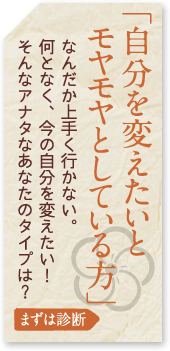 「自分を変えたいと
モヤモヤとしている方」
なんだか上手く行かない。
何となく、今の自分を変えたい！
そんなアナタなあなたのタイプは？
まずは診断